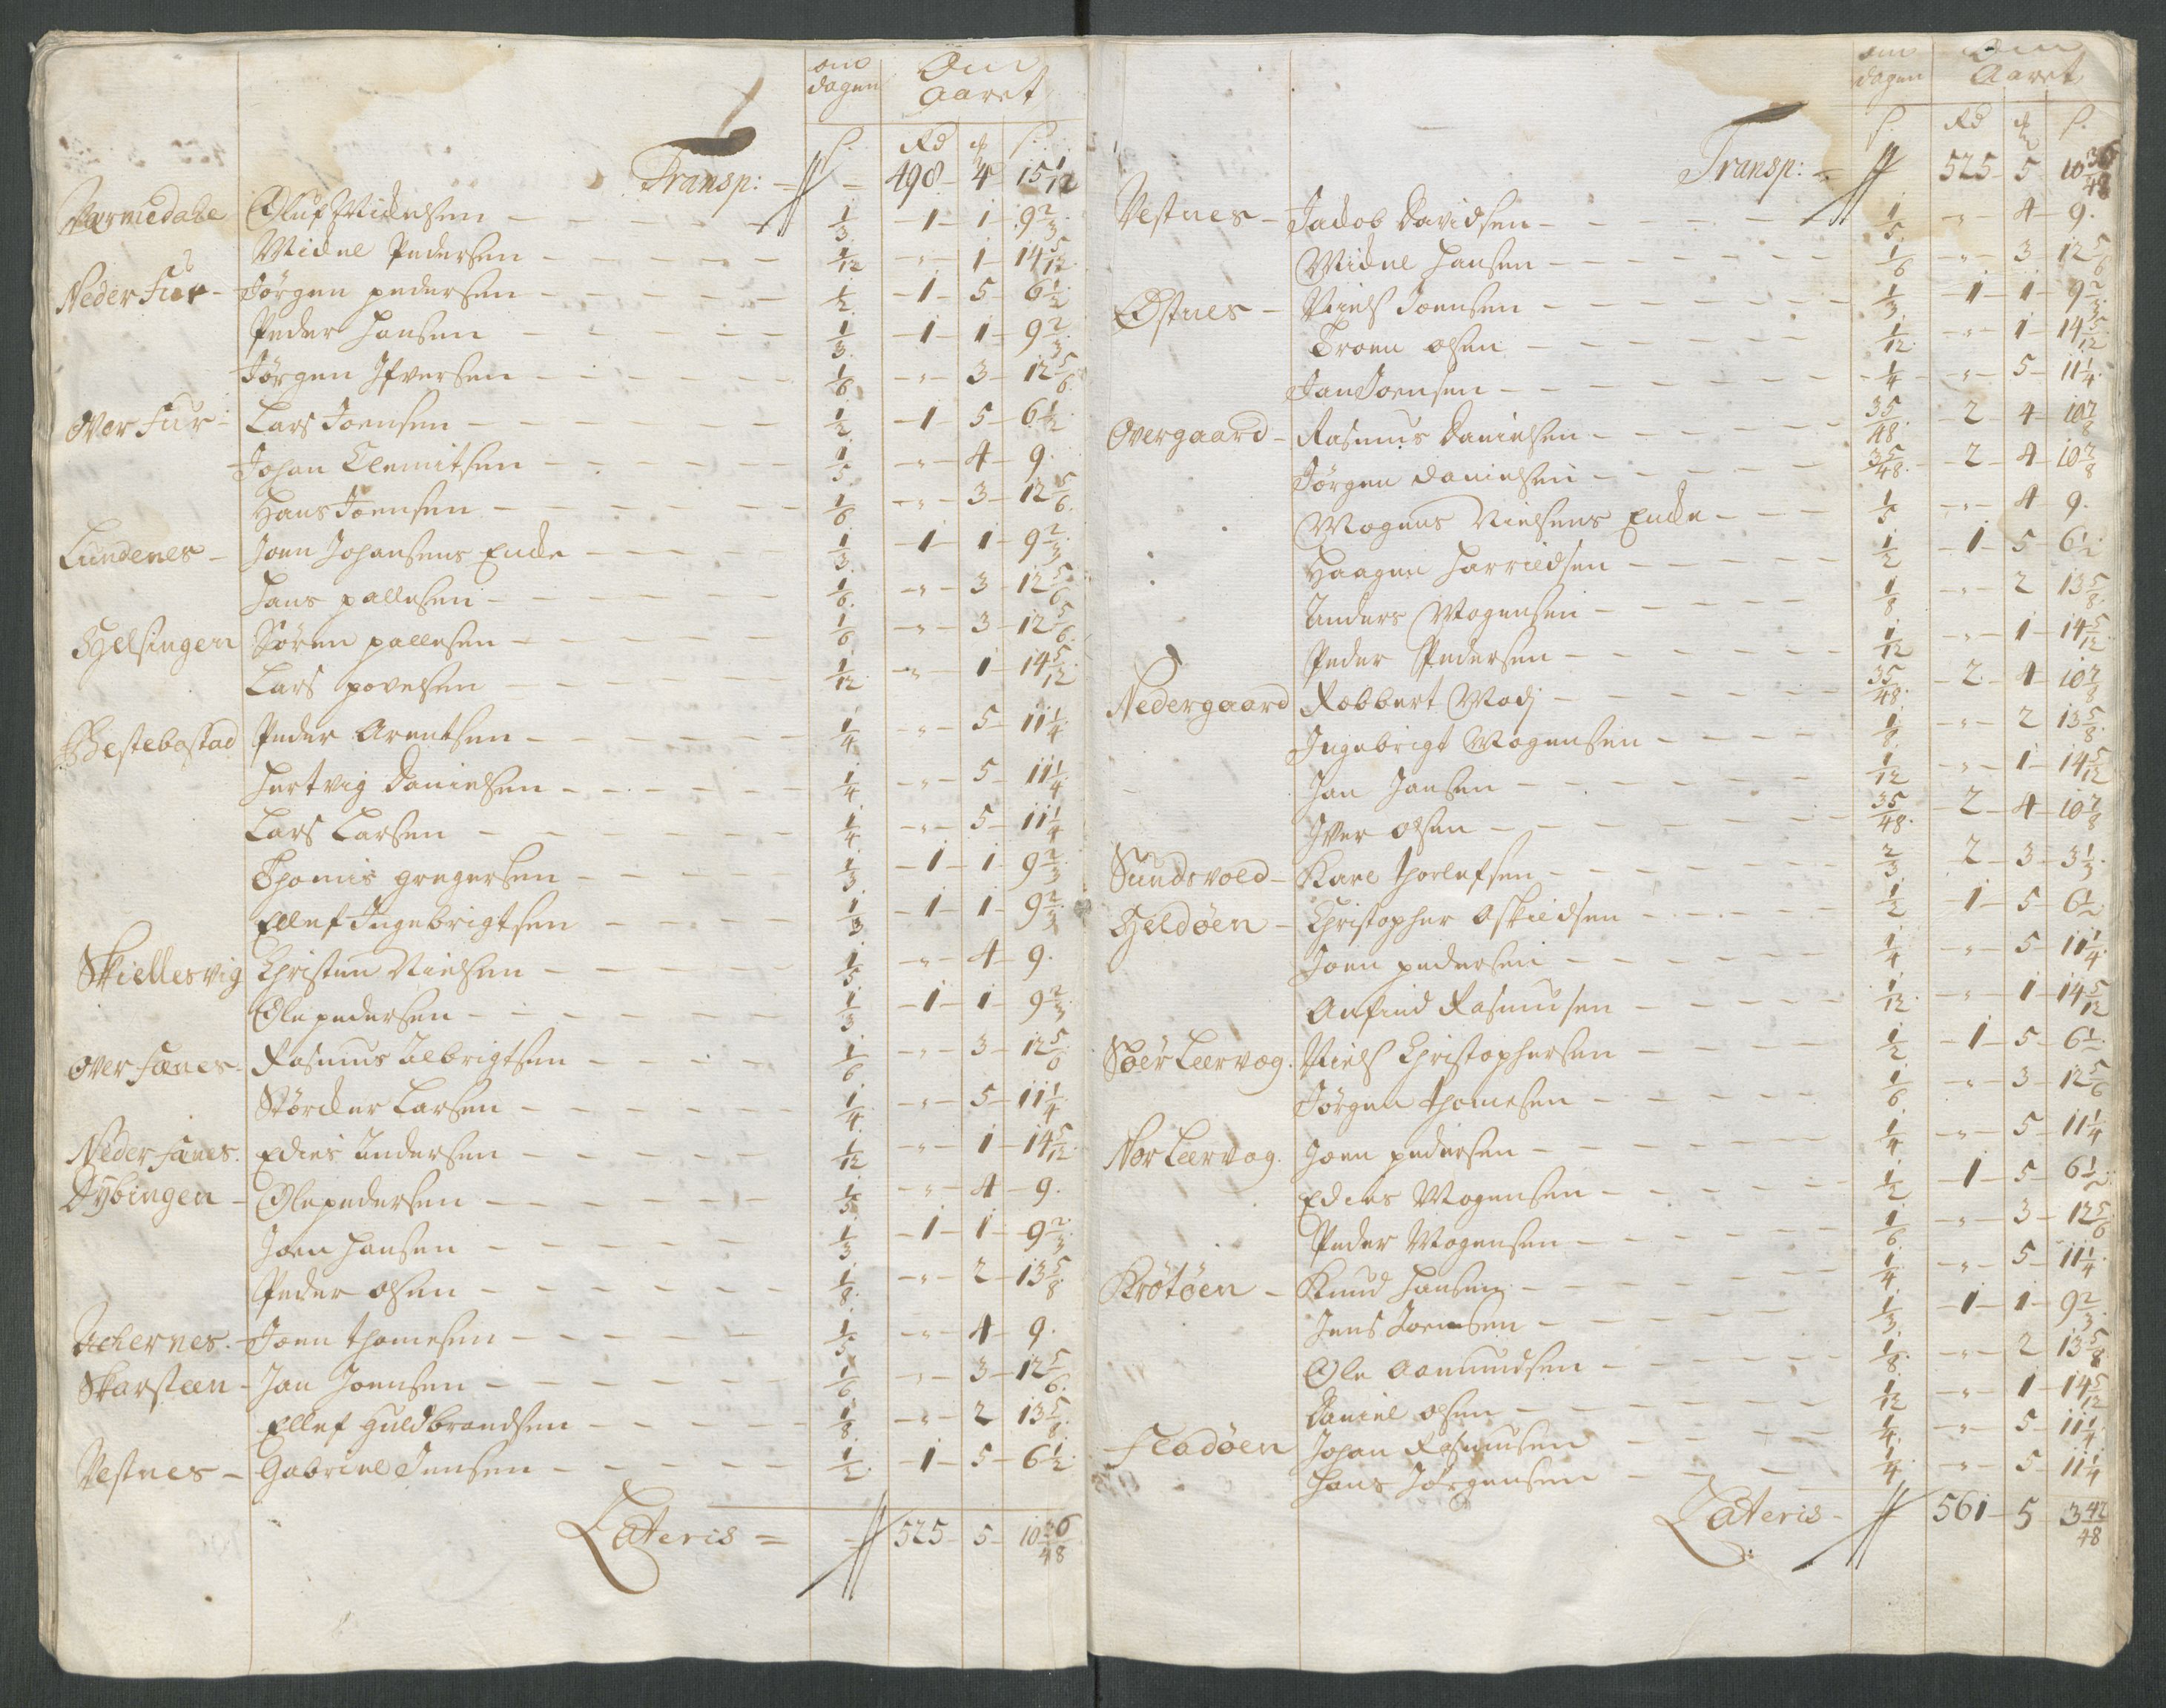 om dagen Om Aaret
s. Rd # s.
Transp: — 498 - 4 - 15 1/12
Varmedahl Oluf Mickelsen — 1/3 — 1 — 1 — 9 2/3
Mickel Pedersen — 1/12 — " — 1 — 14 5/12
Neder Fur — Jørgen pedersen — 1/2 — 1 — 5 — 6 1/2
Peder Hansen — 1/3 — 1 — 1 — 9 2/3
Jørgen Ifversen — 1/6 — " — 3 — 12 5/6
Over Fur — Lars Joensen — 1/2 — 1 — 5 — 6 1/2
Johan Clemitsen — 1/5 — " — 4 — 9.
Hans Joensen — 1/6 — " — 3 — 12 5/6
Lundenes — Joen Johansens Encke — 1/3 — 1 — 1 — 9 2/3
Hans pallesen — 1/6 — " — 3 — 12 5/6
Helsingen Søren pallesen — 1/6 — " — 3 — 12 5/6
Lars povelsen — 1/12 — " — 1 — 14 5/12
Bestebostad Peder Arentsen — 1/4 — " — 5 — 11 1/4
Hertvig Danielsen — 1/4 — " — 5 — 11 1/4
Lars Larsen — 1/4 — " — 5 — 11 1/4
Thomis gregersen — 1/3 — 1 — 1 — 9 2/3
Ellef Ingebrigtsen — 1/3 — 1 — 1 — 9 2/3
Skiellesvig Christen Nielsen — 1/5 — " — 4 — 9.
Ole pedersen — 1/3 — 1 — 1 — 9 2/3
Over Fænes — Rasmus Albrigtsen — 1/6 — " — 3 — 12 5/6
Størcker Larsen — 1/4 — " — 5 — 11 1/4
Neder Fænes. Edies Andersen — 1/12 — " — 1 — 14 5/12
Dybingen — Ole pedersen — 1/5 — " — 4 — 9.
Joen Hansen — 1/3 — 1 — 1 — 9 2/3
Peder olsen — 1/8 — " — 2 — 13 5/8
Ackernes. — Joen thomesen — 1/5 — " — 4 — 9.
Skarsteen — Jan Joensen — 1/6 — " — 3 — 12 5/6
Ellef Guldbrandsen — 1/8 — " — 2 — 13 5/8
Vestnes — Gabriel Jensen — 1/2 — 1 — 5 — 6 1/2
Lateris — 525 — 5 — 10 36/48
om dagen Om Aaret
s. Rd # s.
Transp: — 525 — 5 — 10 36/48
Vestnes — Jacob Davidsen — 1/5 — " — 4 — 9.
Mickel Hansen — 1/6 — " — 3 — 12 5/6
Østnes — Niels Joensen — 1/3 — 1 — 1 — 9 2/3
Troen olsen — 1/12 — " — 1 — 14 5/12
Jan Joensen — 1/4 — " — 5 — 11 1/4
Overgaard — Rasmus Danielsen — 35/48 — 2 — 4 — 10 7/8
Jørgen danielsen — 35/48 — 2 — 4 — 10 7/8
Mogens Nielsens Encke — 1/5 — " — 4 — 9.
Haagen Harrildsen — 1/2 — 1 — 5 — 6 1/2
Anders Mogensen — 1/8 — " — 2 — 13 5/8
Peder Pedersen — 1/12 — " — 1 — 14 5/12
Nedergaard Robbert Modj — 35/48 — 2 — 4 — 10 7/8
Ingebrigt Mogensen — 1/8 — " — 2 — 13 5/8
Jan Jansen — 1/12 — " — 1 — 14 5/12
Iver olsen — 35/48 — 2 — 4 — 10 7/8
Sundsvold — Karl thorlefsen — 2/3 — 2 — 3 — 3 1/3
Heldøen — Christopher Askildsen — 1/2 — 1 — 5 — 6 1/2
Joen pedersen — 1/4 — " — 5 — 11 1/4
Anfind Rasmusen — 1/12 — " — 1 — 14 5/12
Søer Leervog. Niels Christophersen — 1/2 — 1 — 5 — 6 1/2
Jørgen thomesen — 1/6 — " — 3 — 12 5/6
Nor Leervog. Joen pedersen — 1/4 — " — 5 — 11 1/4
Edies Mogensen — 1/2 — 1 — 5 — 6 1/2
Peder Mogensen — 1/6 — " — 3 — 12 5/6
Krøtøen — Knud Hansen — 1/4 — " — 5 — 11 1/4
Jens Joensen — 1/3 — 1 — 1 — 9 2/3
Ole Aamundsen — 1/8 — " — 2 — 13 5/8
Daniel olsen — 1/12 — " — 1 — 14 5/12
Fladøen Johan Rasmusen — 1/4 — " — 5 — 11 1/4
Hans Jørgensen — 1/4 — " — 5 — 11 1/4
Lateris — 561 — 5 — 3 42/48